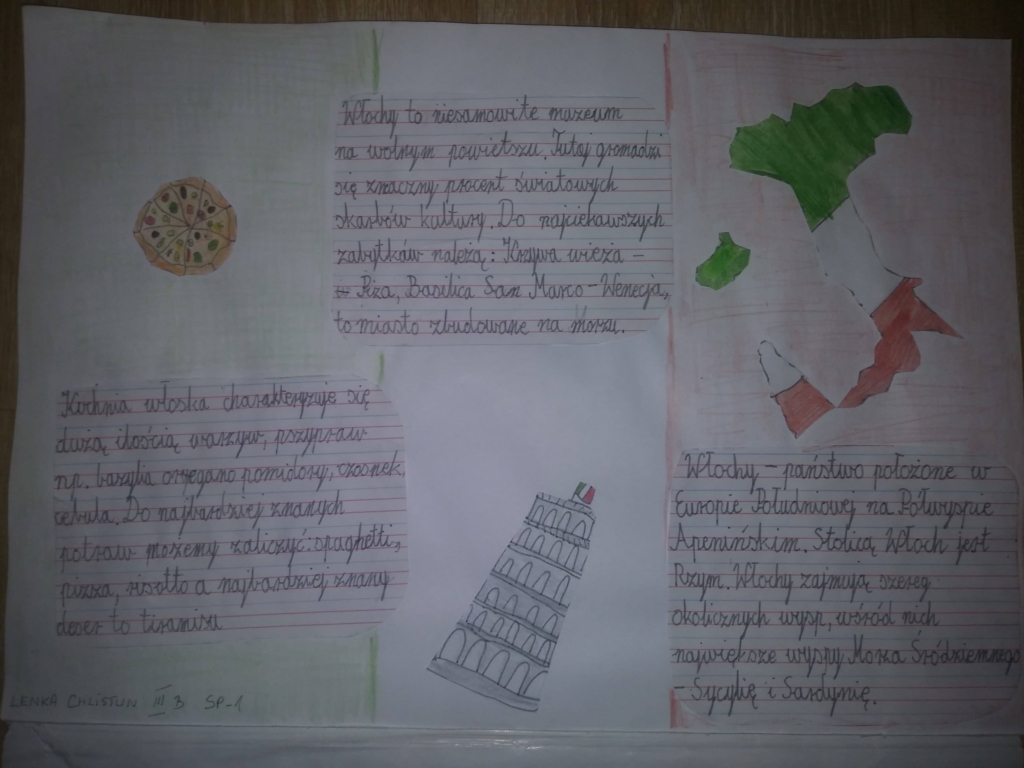 Włochy to niesamowite muzeum
na wolnym powietszu. Tutaj gromadzi
się znaczny procent światowych
skarbów kultury. Do najciekawszych
zabytków należą: Krzywa wieża -
Piza, Basilica San Marco - Wenecja,
to miasto zbudowane na morzu.
Kuchnia włoska charakteryzuje się
dużą ilością warzyw, przypraw
np. bazylia oregano pomidory, czosnek
cebula. Do najbardziej znanych
potraw możemy zaliczyć: spaghetti,
pizza, risotto a najbardziej znany
deser to tiramisu
Włochy, - państwo położone w
Europie Południowej na Półwyspie
Apenińskim. Stolicą Włoch jest
Rzym. Włochy zajmują szereg
okolicznych wysp, wśród nich
największe wyspy Morza Śródziemnego
- Sycylię i Sardynię.
LENKA CHLISTUN III B SP-1